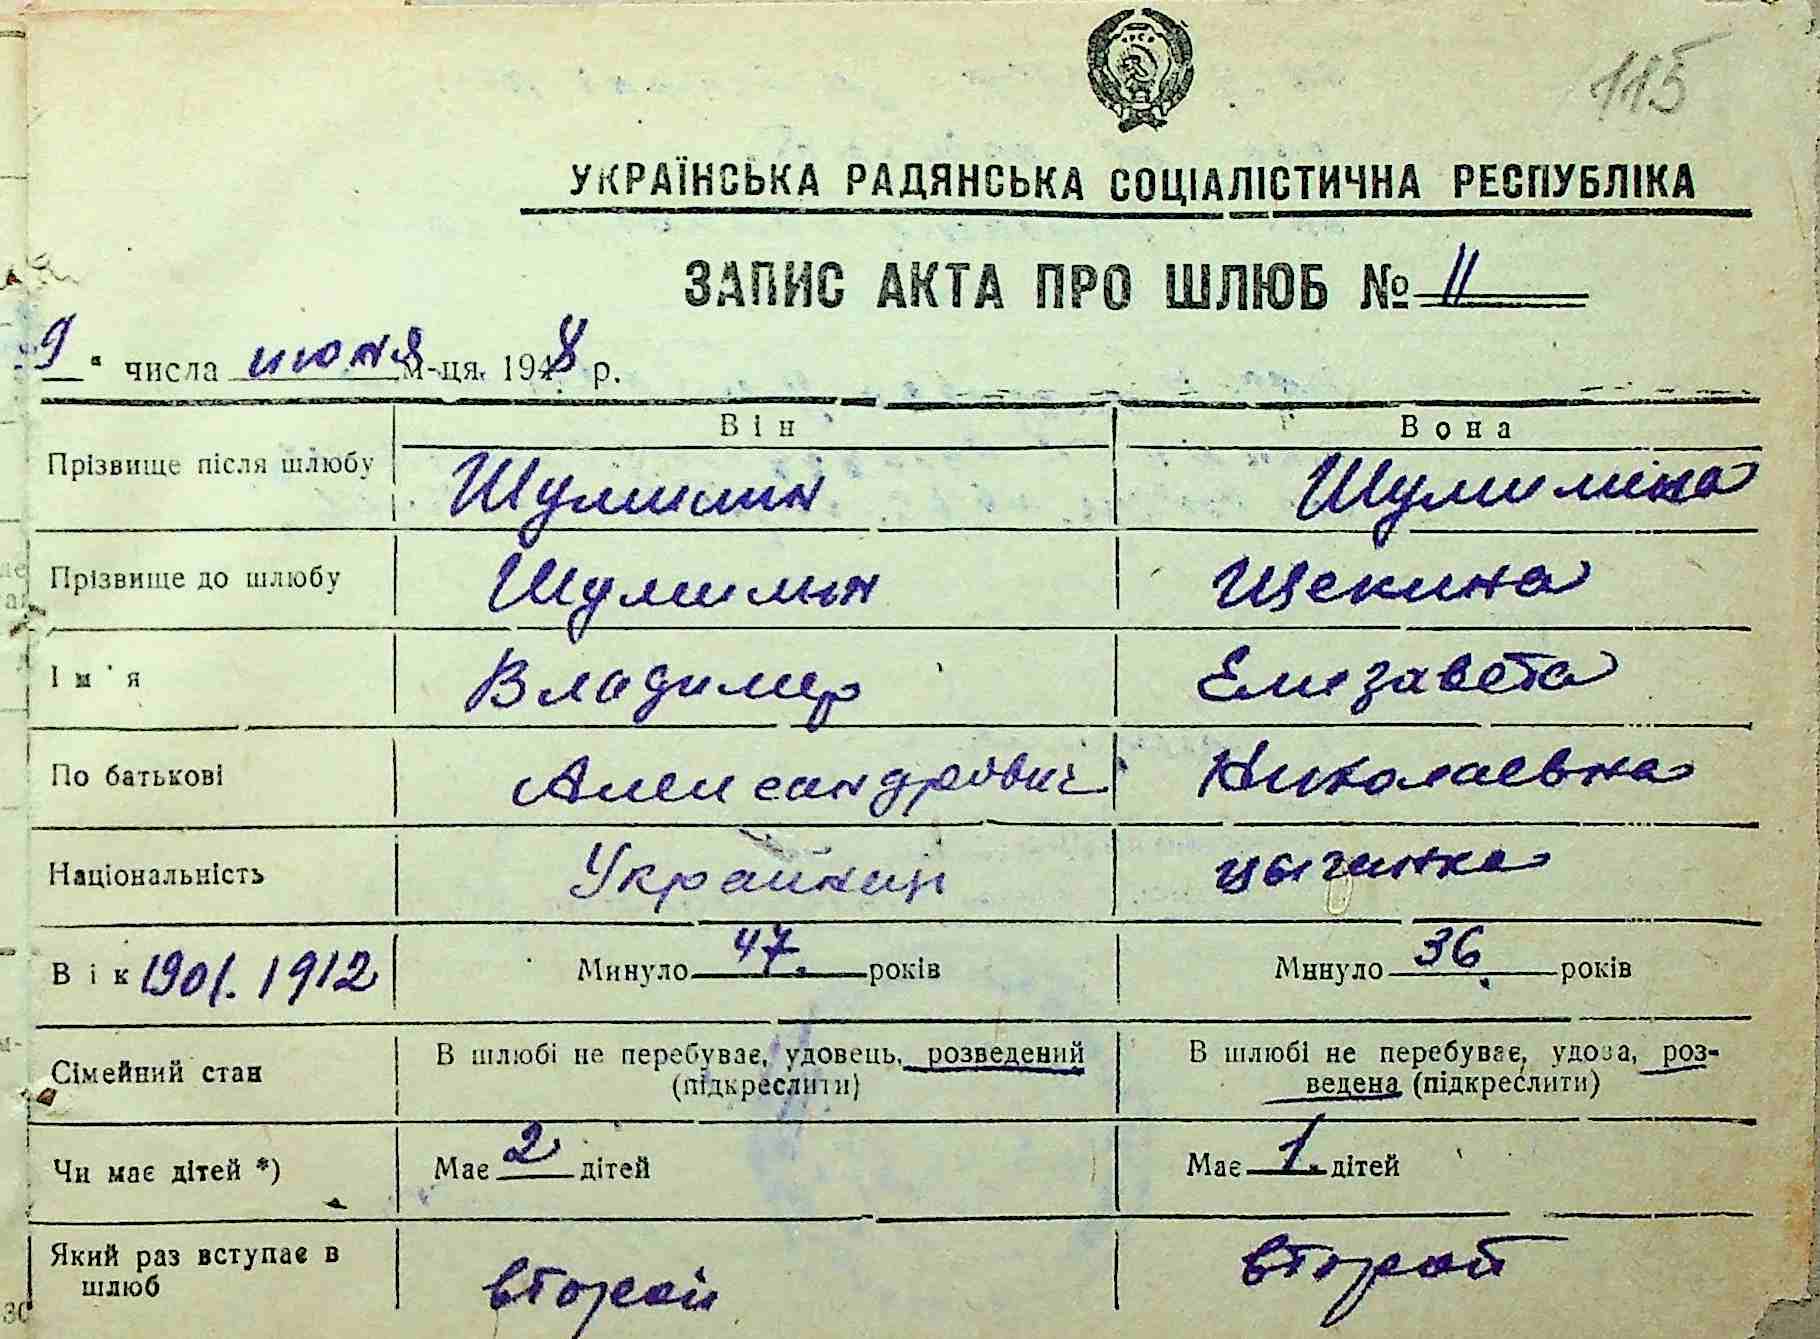 115
УКРАЇНСЬКА РАДЯНСЬКА СОЦІАЛІСТИЧНА РЕСПУБЛІКА
ЗАПИС АКТА ПРО ШЛЮБ № 11
9 " числа июня м-ця 1948 р.
Він Вона
Прізвище після шлюбу Шулимин Шулимина
Прізвище до шлюбу Шулимин Щекина
Ім'я Владимир Елизавета
По батькові Александрович Николаевна
Національність Украйинец цыганка
Вік 1901. 1912 Минуло 47. років Минуло 36 років
Сімейний стан В шлюбі не перебуває, удовець, розведений В шлюбі не перебуває, удова, роз-
(підкреслити) ведена (підкреслити)
Чи має дітей *) Має 2 дітей Має 1. дітей
Який раз вступає в
шлюб второй второй